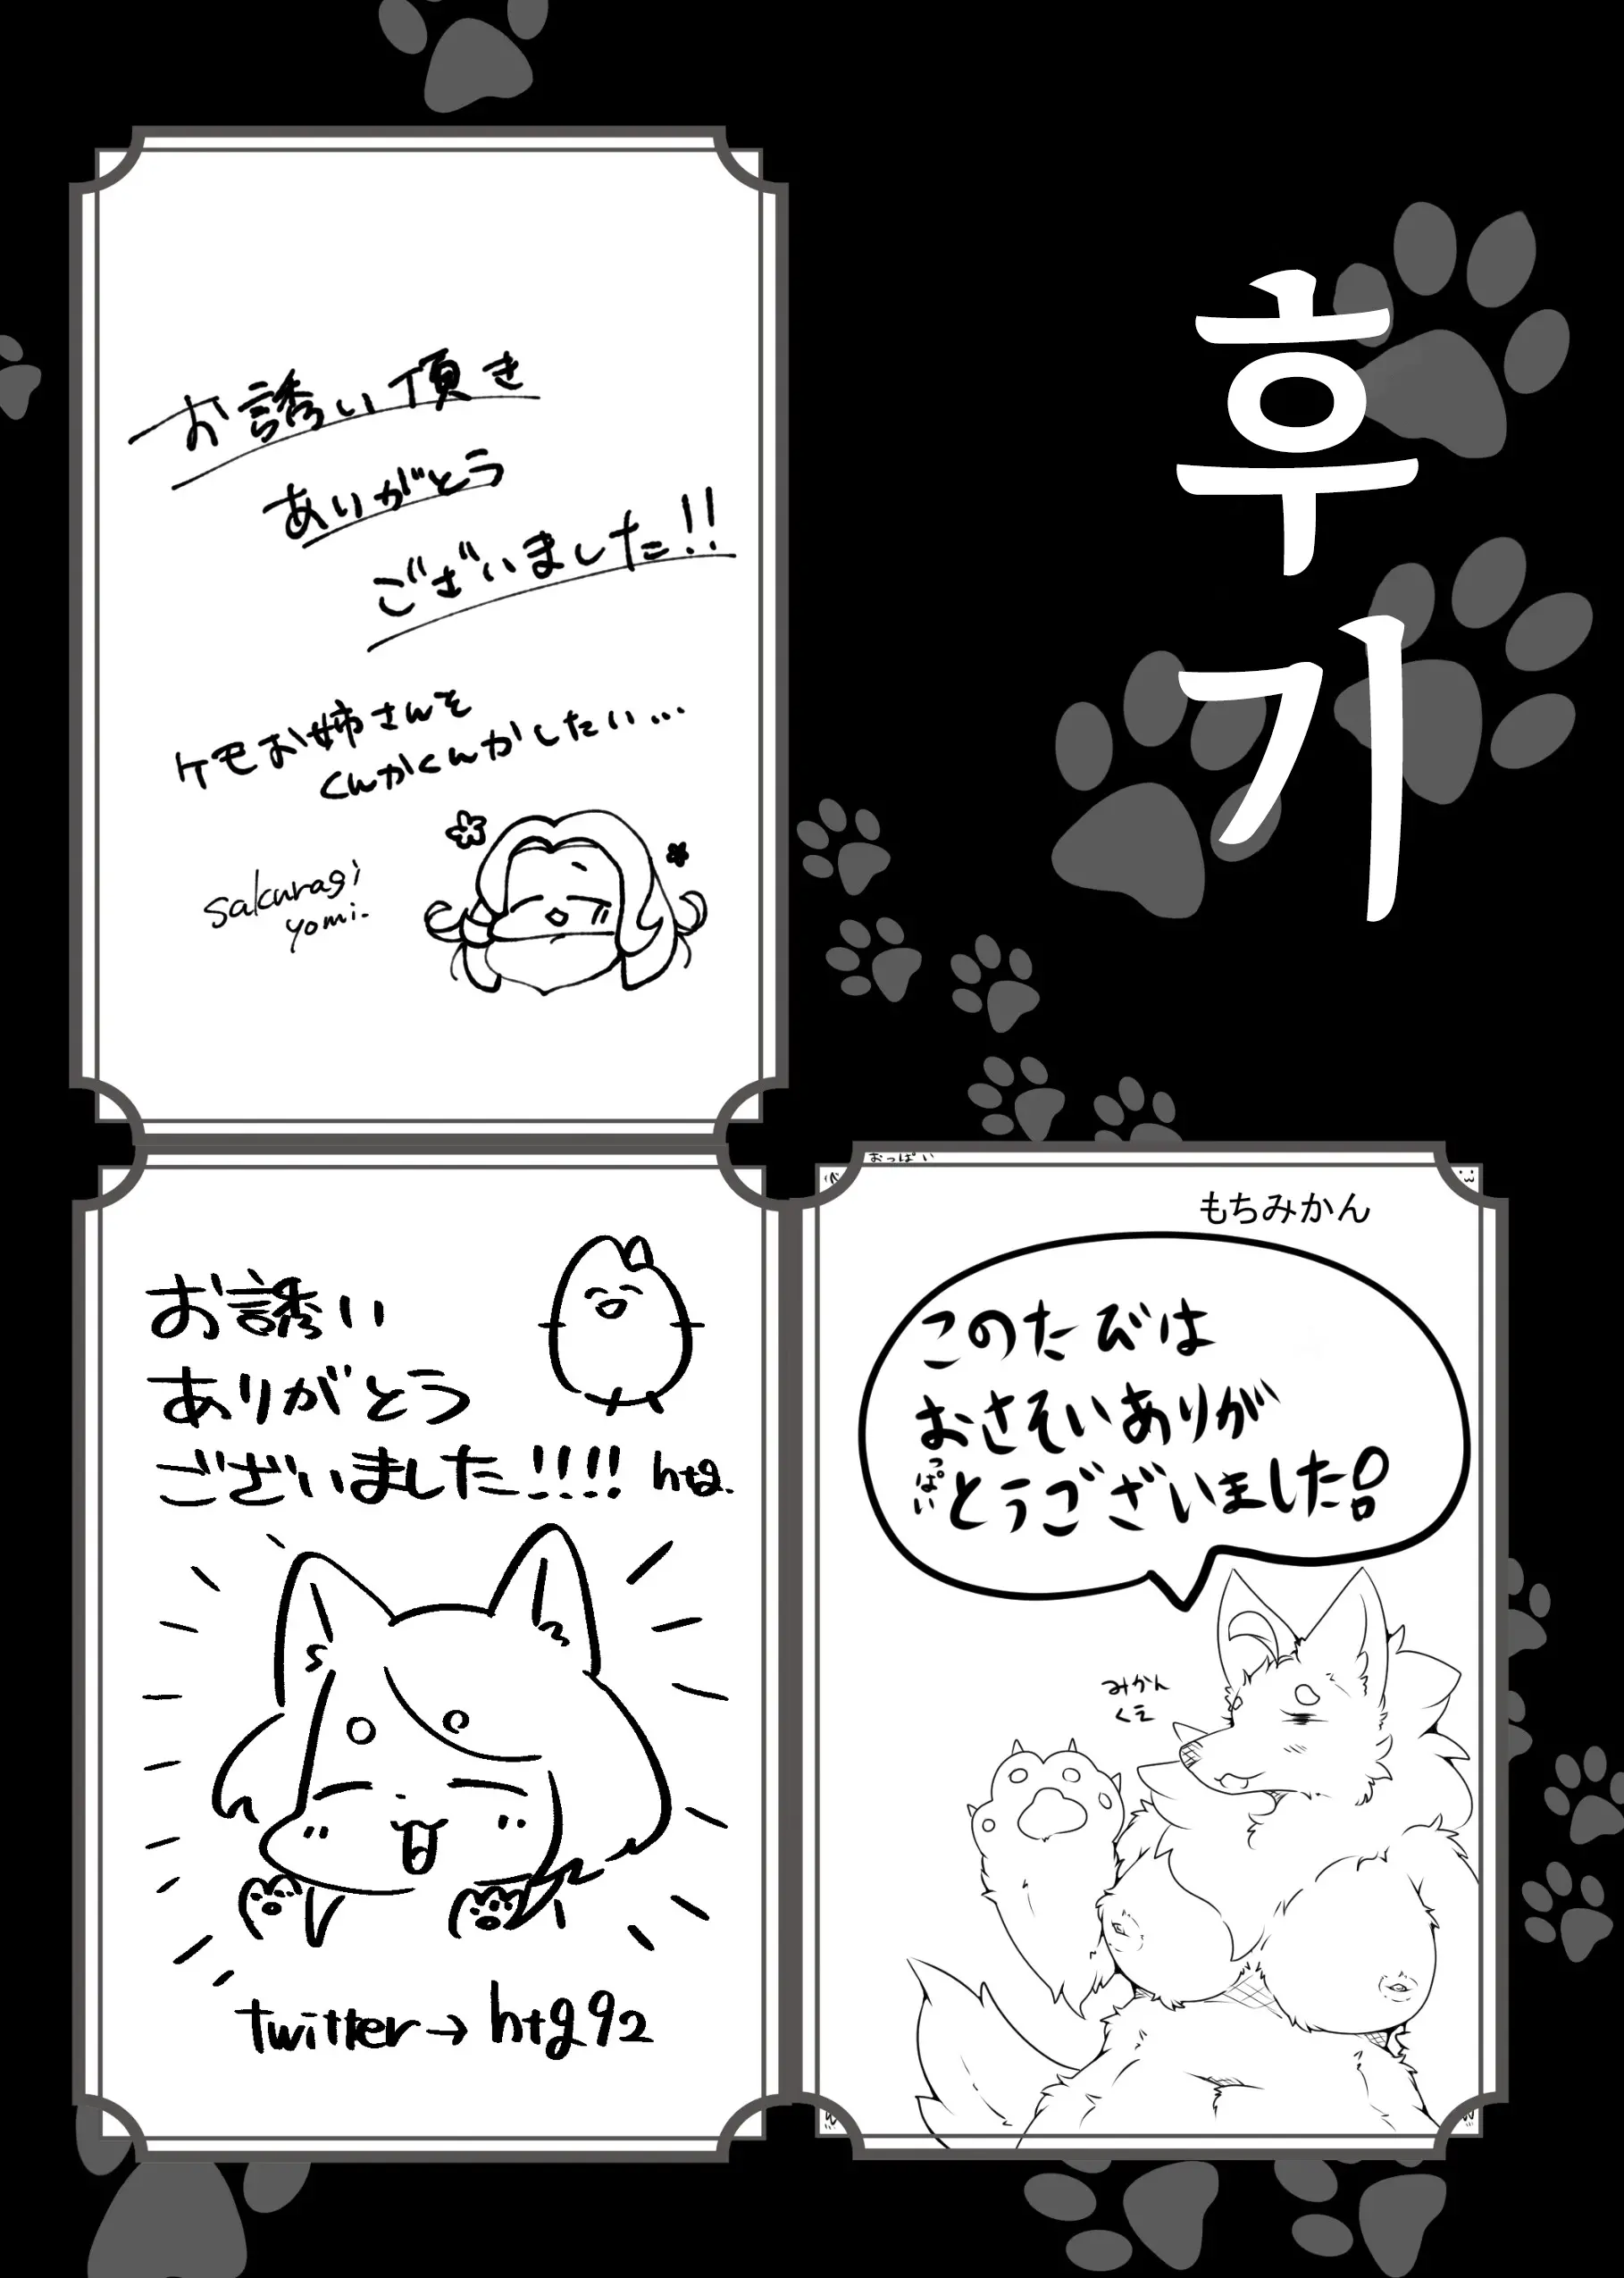 후기
お誘い頂き
ありがとう
ございました!!
ケモお姉さんを
くんかくんかしたい…
sakuragi
yomi.
おっぱい
もちみかん
このたびは
おさそいありが
っぱい
とうございました!!
みかん
くえ
お誘い
ありがとう
ございました!!!! htg.
twitter→htg92